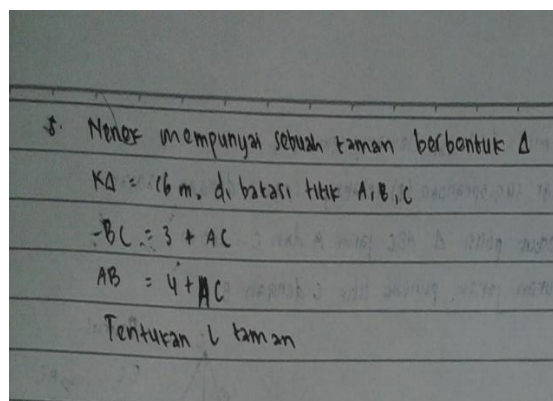 5. Nenek mempunyai sebuah taman berbentuk Δ
KΔ = 16 m. di batasi titik A, B, C
- BC = 3 + AC
AB = 4 + AC
Tentukan L taman